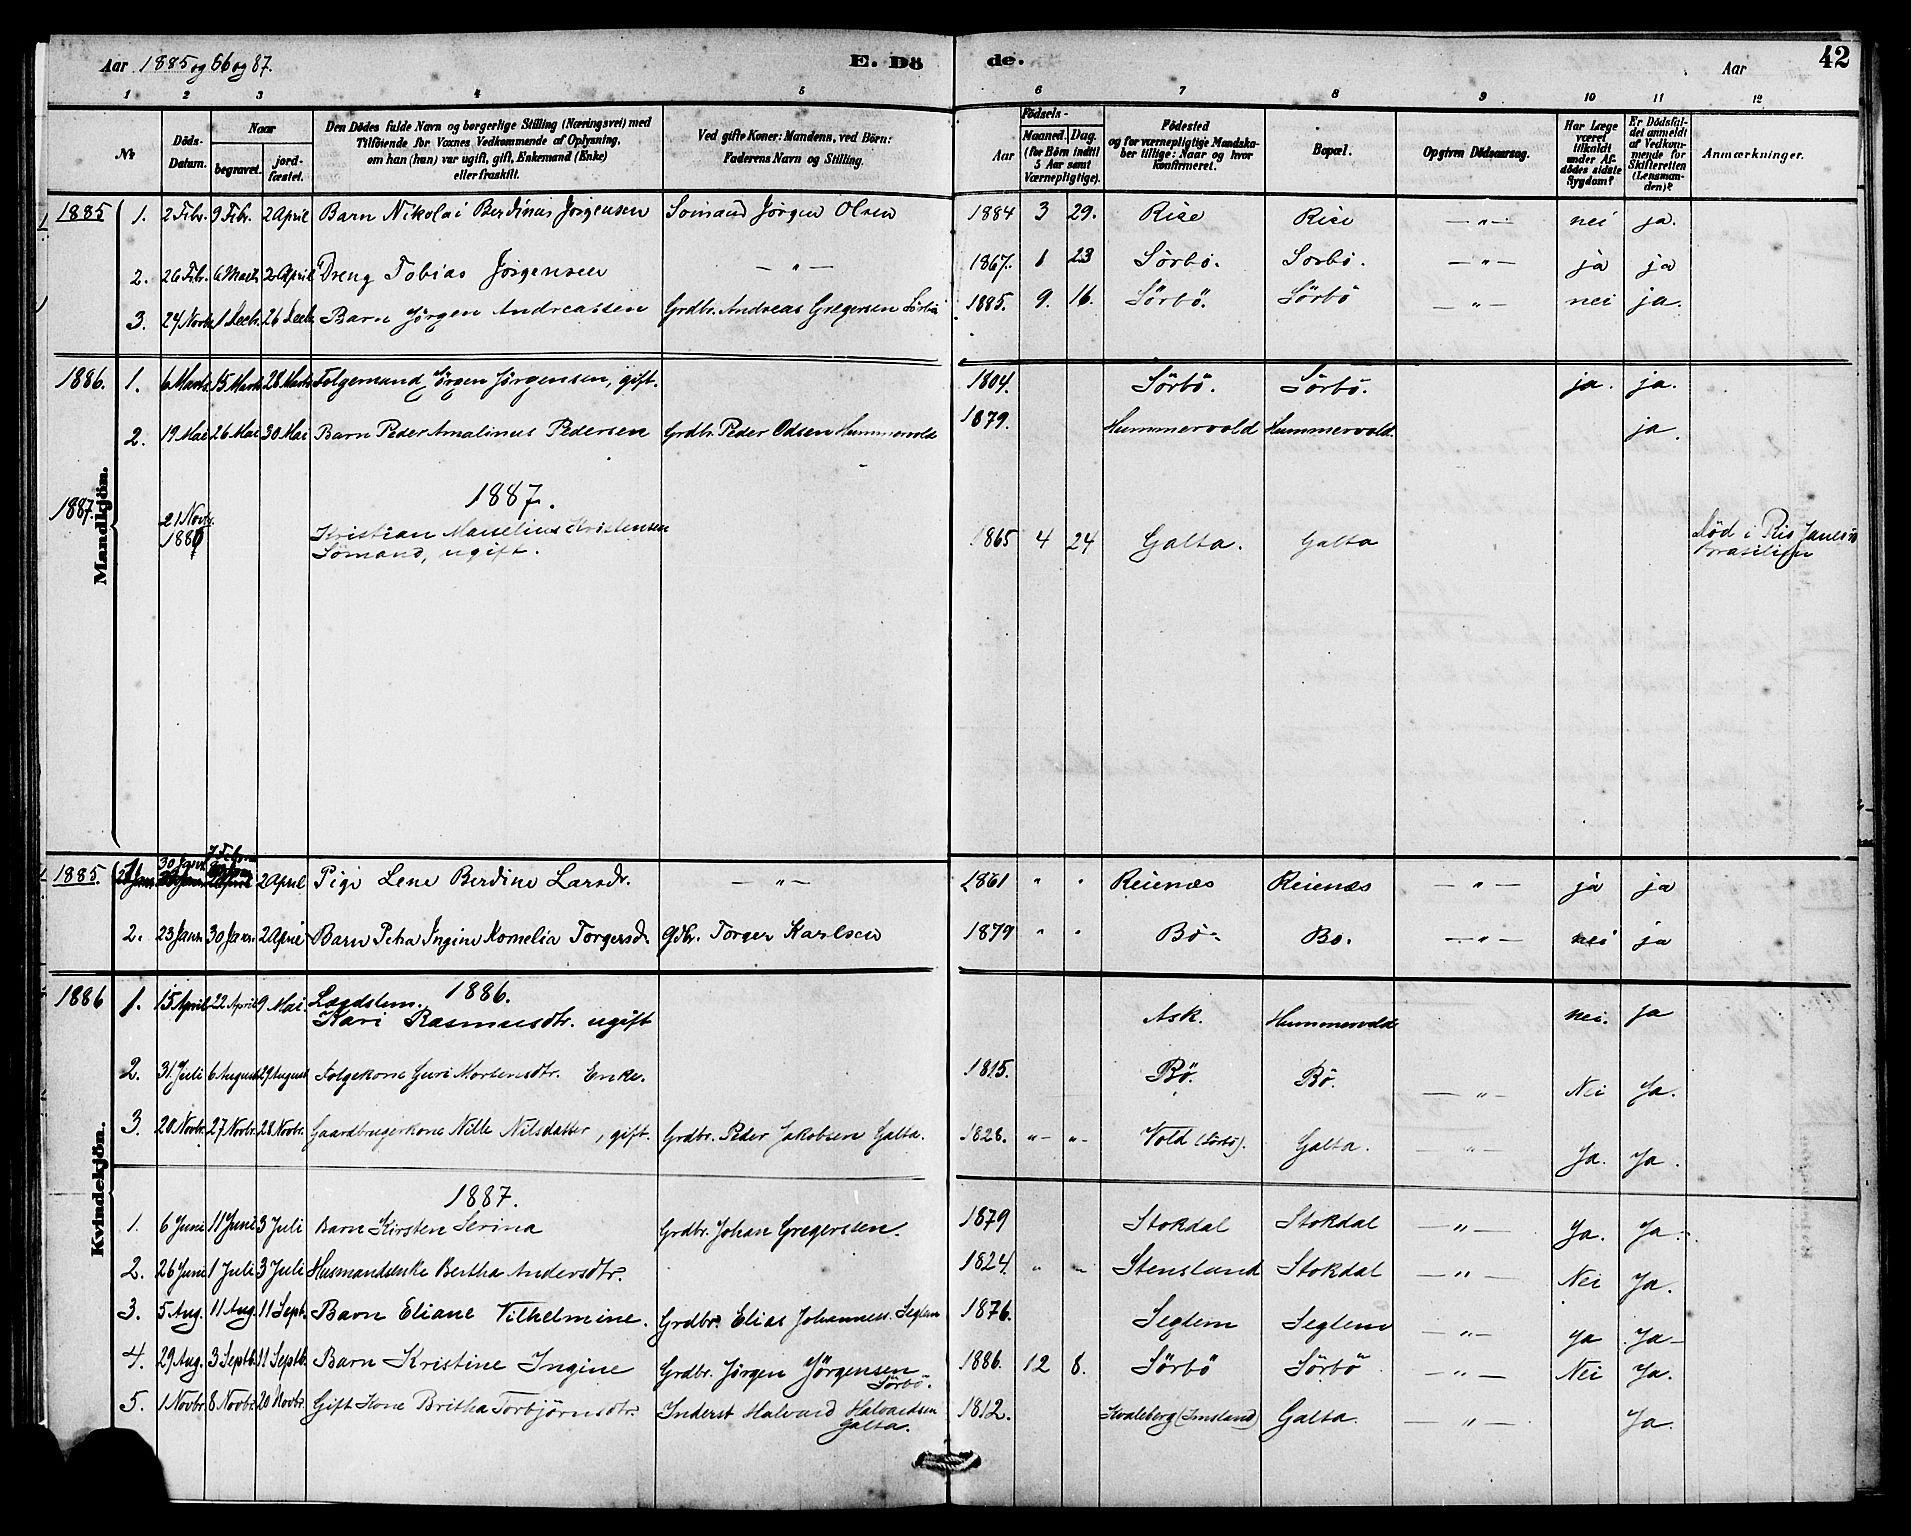 Aar 1885 og 86 og 87. E. Dö de. Aar 42
1 2 3 4 5 6 7 8 9 10 11 12
No
Döds-Datum.
Naar
begravet.
jord-fæstet.
Den Dödes fulde Navn og borgerlige Stilling (Næringsvei) med
Tilföiende for Voxnes Vedkommende af Oplysning,
om han (hun) var ugift, gift, Enkemand (Enke)
eller fraskilt.
Ved gifte Koner: Mandens, ved Börn:
Faderens Navn og Stilling.
Födsels-
Aar
Maaned. Dag.
(for Börn indtil
5 Aar samt
Værnepligtige).
Födested
og for værnepligtige Mandska-
ber tillige: Naar og hvor
konfirmeret.
Bopæl.
Opgiven Dödsaarsag.
Har Læge
været
tilkaldt
under Af-
dödes sidste
Sygdom?
Er Dödsfal-
det anmeldt
af Vedkom-
mende for
Skifteretten
(Lensman-
den)?
Anmærkninger.
Mandkjön.
1885 1. 2 Febr. 9 Febr. 2 April Barn Nikolai Berdinus Jörgensen Sömand Jörgen Olsen 1884 3 29. Rise Rise — " — nei ja.
2. 26 Febr. 6 Marts 2 April Dreng Tobias Jörgensen — " — 1867. 1 23 Sörbö. Sörbö. — " — ja ja
3. 24 Novbr. 1 Decbr. 26 Decbr. Barn Jörgen Andreassen Grdbr. Andreas Gregersen Sörbö 1885. 9. 16. Sörbö. Sörbö — " — nei ja.
1886. 1. 6 Marts 15 Marts 28 Marts Folgemand Jörgen Jörgensen, gift. 1804. Sörbö. Sörbö. ja. ja.
2. 19 Mai 26 Mai 30 Mai Barn Peder Amalinus Pedersen Grdbr. Peder Odsen Hummervold 1879. Hummervold Hummervold. ja.
1887. 1887.
21 Novbr. Kristian Marselius Kristensen 1865 4 24 Galta. Galta Död i Rio Janeiro
Sömand, ugift. Brasilien
Kvindekjön.
1885. 1 30 Janr. 7 Febr. 2 April Pige Lene Berdine Larsdr. — " — 1861 " " Reienæs Reienæs — " — ja ja
2. 23 Janr. 30 Janr. 2 April Barn Petra Ingine Kornelia Torgersdr. Gdbr. Torger Karlsen 1879 " " Bö. Bö. — " — nei ja
1886 1. 15 April 22 April 9 Mai. Lægdslem. 1886.
Kari Rasmusdtr. ugift Ask. Hummervold nei. ja
2. 31. Juli 6 August 29 August Folgekone Guri Mortensdtr. Enke. 1815. Bö. Bö. — " — Nei Ja.
3. 20 Novbr. 27 Novbr. 28 Novbr. Gaardbrugerkone Nille Nilsdatter, gift. Grdbr. Peder Jakobsen Galta. 1828. " — " — Vold (Sörbö). Galta. — " — Ja. Ja.
1887.
1. 6 Juni 11 Juni 3 Juli Barn Kirsten Serina Grdbr. Johan Gregersen. 1879 Stokdal Stokdal — " — Ja. Ja.
2. 26 Juni 1 Juli 3 Juli Husmandsenke Bertha Andersdtr. 1824. " " Stensland Stokdal — " — Nei Ja.
3. 5 Aug. 11 Aug. 11 Sept. Barn Eliane Vilhelmine. Grdbr. Elias Johanness. Seglem 1876. Seglem Seglem — " — Ja Ja
4. 29 Aug. 3 Septb. 11 Septb. Barn Kristine Ingine Grdbr. Jörgen Jörgensen
Sörbö. 1886. 12 8. Sörbö Sörbö — " — Nei Ja.
5. 1 Novbr. 8 Novbr. 20 Novbr. Gift Kone Britha Torbjörnsdtr. Inderst Halvard Halvardsen
Galta. 1812. Kvaleberg (Imsland) Galta. — " — Ja.